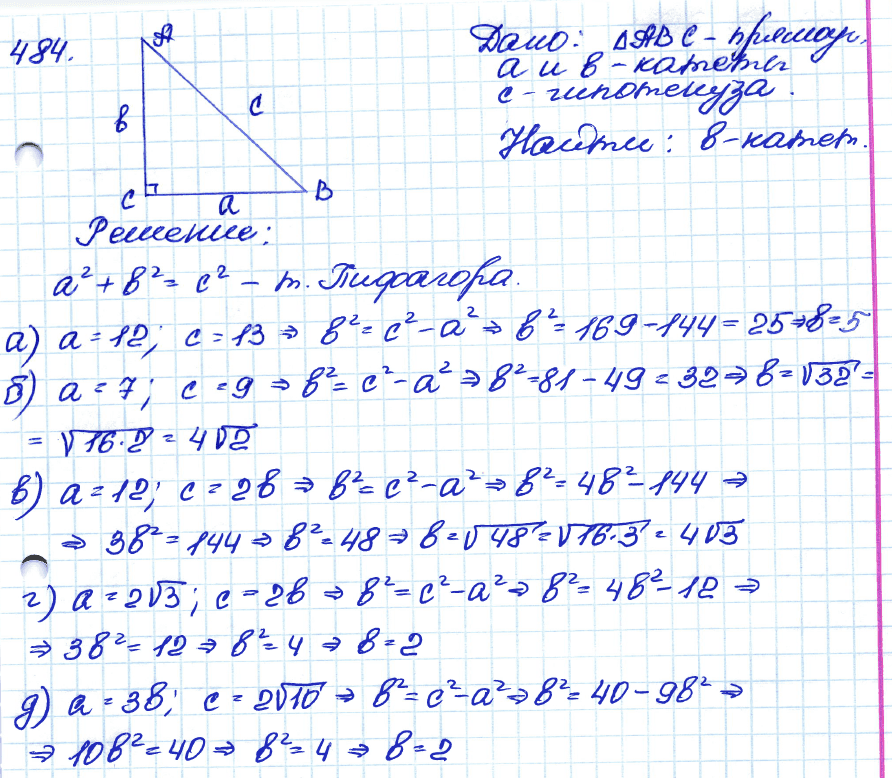 484.
A
в
c
C
a
B
Дано: ΔABC - прямоуг.
a и в - катеты
c - гипотенуза.
Найти: в - катет.
Решение:
a² + в² = c² - т. Пифагора.
а) a = 12; c = 13 ⇒ в² = c² - a² ⇒ в² = 169 - 144 = 25 ⇒ в = 5
б) a = 7; c = 9 ⇒ в² = c² - a² ⇒ в² = 81 - 49 = 32 ⇒ в = √32 =
= √16·2 = 4√2
в) a = 12; c = 2в ⇒ в² = c² - a² ⇒ в² = 4в² - 144 ⇒
⇒ 3в² = 144 ⇒ в² = 48 ⇒ в = √48 = √16·3 = 4√3
г) a = 2√3; c = 2в ⇒ в² = c² - a² ⇒ в² = 4в² - 12 ⇒
⇒ 3в² = 12 ⇒ в² = 4 ⇒ в = 2
д) a = 3в; c = 2√10 ⇒ в² = c² - a² ⇒ в² = 40 - 9в² ⇒
⇒ 10в² = 40 ⇒ в² = 4 ⇒ в = 2